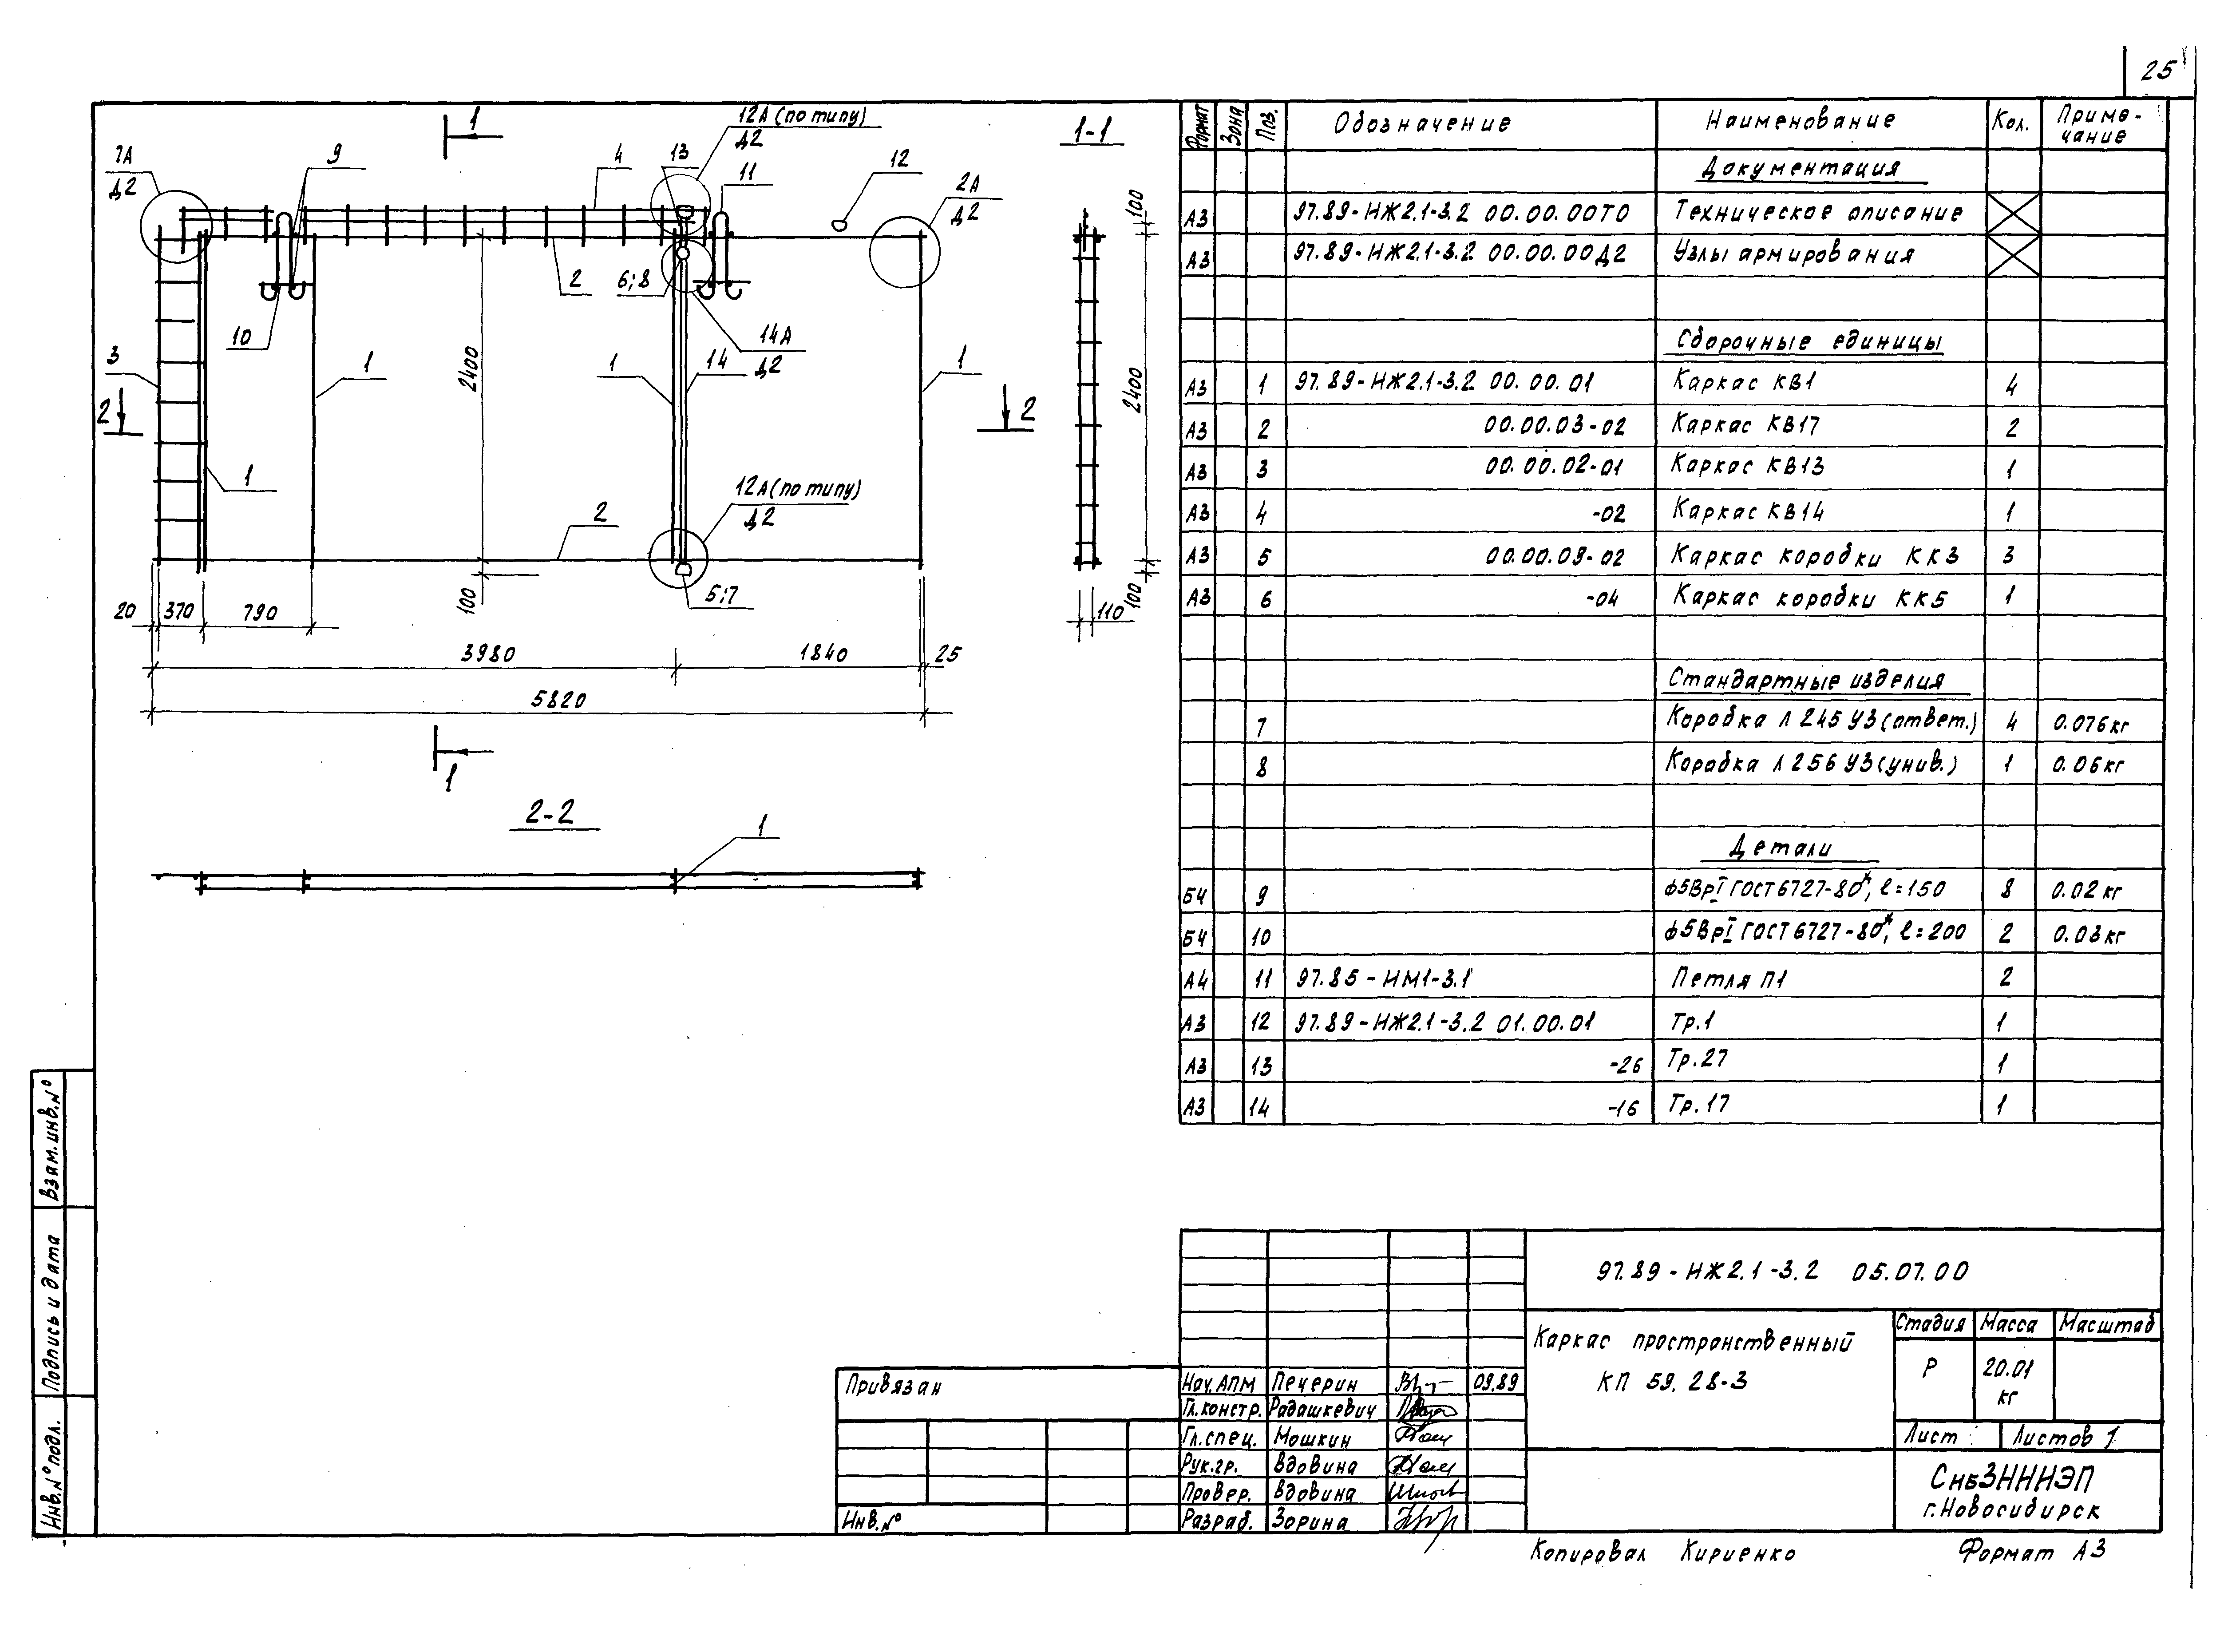 25
1
12А (по типу)
Д2
7А
Д2
9
13
4
11
12
2А
Д2
1-1
100
2
6;8
10
3
1
2400
1
14
14А
Д2
1
2400
2
2
1
12А (по типу)
Д2
2
100
5;7
100
110
20 370 790
3980 1840 25
5820
1
2-2
1
Формат Зона Поз. Обозначение Наименование Кол. Приме-
чание
Документация
А3 97.89-НЖ2.1-3.2 00.00.00ТО Техническое описание
А3 97.89-НЖ2.1-3.2 00.00.00Д2 Узлы армирования
Сборочные единицы
А3 1 97.89-НЖ2.1-3.2 00.00.01 Каркас КВ1 4
А3 2 00.00.03-02 Каркас КВ17 2
А3 3 00.00.02-01 Каркас КВ13 1
А3 4 -02 Каркас КВ14 1
А3 5 00.00.09-02 Каркас коробки КК3 3
А3 6 -04 Каркас коробки КК5 1
Стандартные изделия
7 Коробка Л 245 У3 (ответ.) 4 0.076кг
8 Коробка Л 256 У3 (унив.) 1 0.06кг
Детали
Б4 9 ф5ВрI ГОСТ 6727-80*, ℓ=150 8 0.02кг
Б4 10 ф5ВрI ГОСТ 6727-80*, ℓ=200 2 0.03кг
А4 11 97.85-НМ1-3.1 Петля П1 2
А3 12 97.89-НЖ2.1-3.2 01.00.01 Тр.1 1
А3 13 -26 Тр.27 1
А3 14 -16 Тр.17 1
97.89-НЖ2.1-3.2 05.07.00
Каркас пространственный
КП 59.28-3
Стадия Масса Масштаб
Р 20.01
кг
Лист Листов 1
СибЗНИИЭП
г.Новосибирск
Нач.АПМ Печерин 09.89
Гл.констр. Радашкевич
Гл.спец. Мошкин
Рук.гр. Вдовина
Провер. Вдовина
Разраб. Зорина
Привязан
Инв.№
Взам.инв.№
Подпись и дата
Инв.№подл.
Копировал Кириенко Формат А3